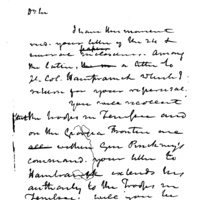 Dr Sir
I have this moment
recd. your letter of the 24 &
several enclosures. Among
the latter a letter to
Lt. Col. Hambranch which I
return for your reperusal.
You will recollect
the troops in
and on the Georgia Frontier are
all within Gen Pinckney's
command. your letter to
extends his
authority to the Troops in
will you be